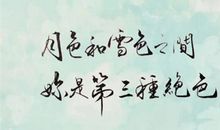 月色和雪色之間
妳是第三種絕色